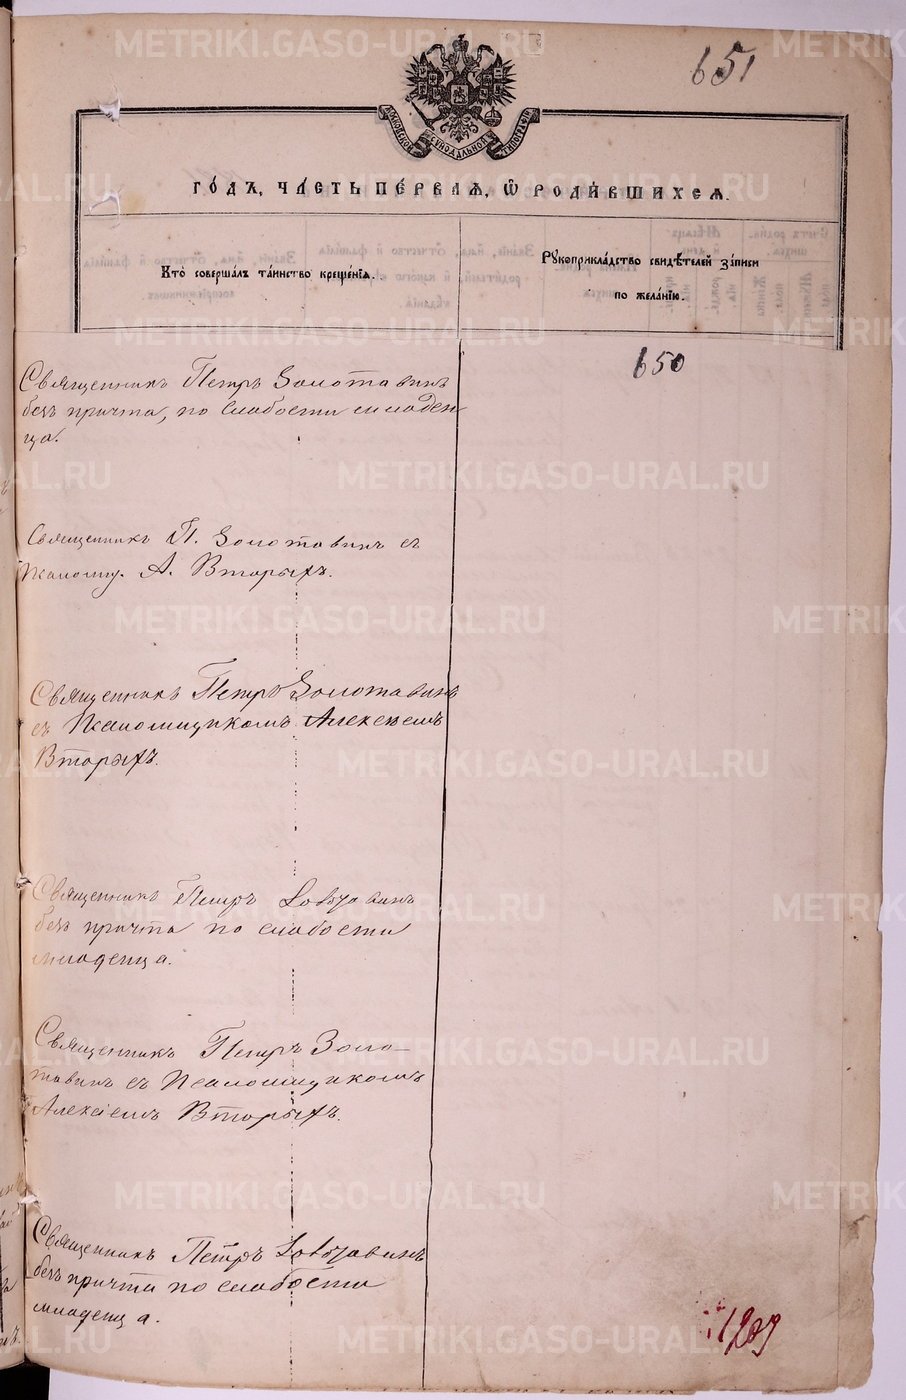 651
МОСКОВСКОЙ СѴНОДАЛЬНОЙ ТИПОГРАФІИ
ГОДЪ, ЧАСТЬ ПЕРВАЯ, Ѿ РОДИВШИХСЯ.
Кто совершалъ таинство крещенія.
Рукоприкладство свидѣтелей записи
по желанію.
650
Священникъ Петръ Золотавинъ
безъ причта, по слабости младен
ца.
Священникъ П. Золотавинъ съ
Псаломщ. А. Вторыхъ.
Священникъ Петръ Золотавинъ
съ Псаломщикомъ Алексѣемъ
Вторыхъ.
Священникъ Петръ
безъ причта по слабости
младенца.
Священникъ Петръ Золо-
тавинъ съ Псаломщикомъ
Алексіемъ Вторыхъ.
Священникъ Петръ
безъ причта по слабости
младенца.
METRIKI.GASO-URAL.RU